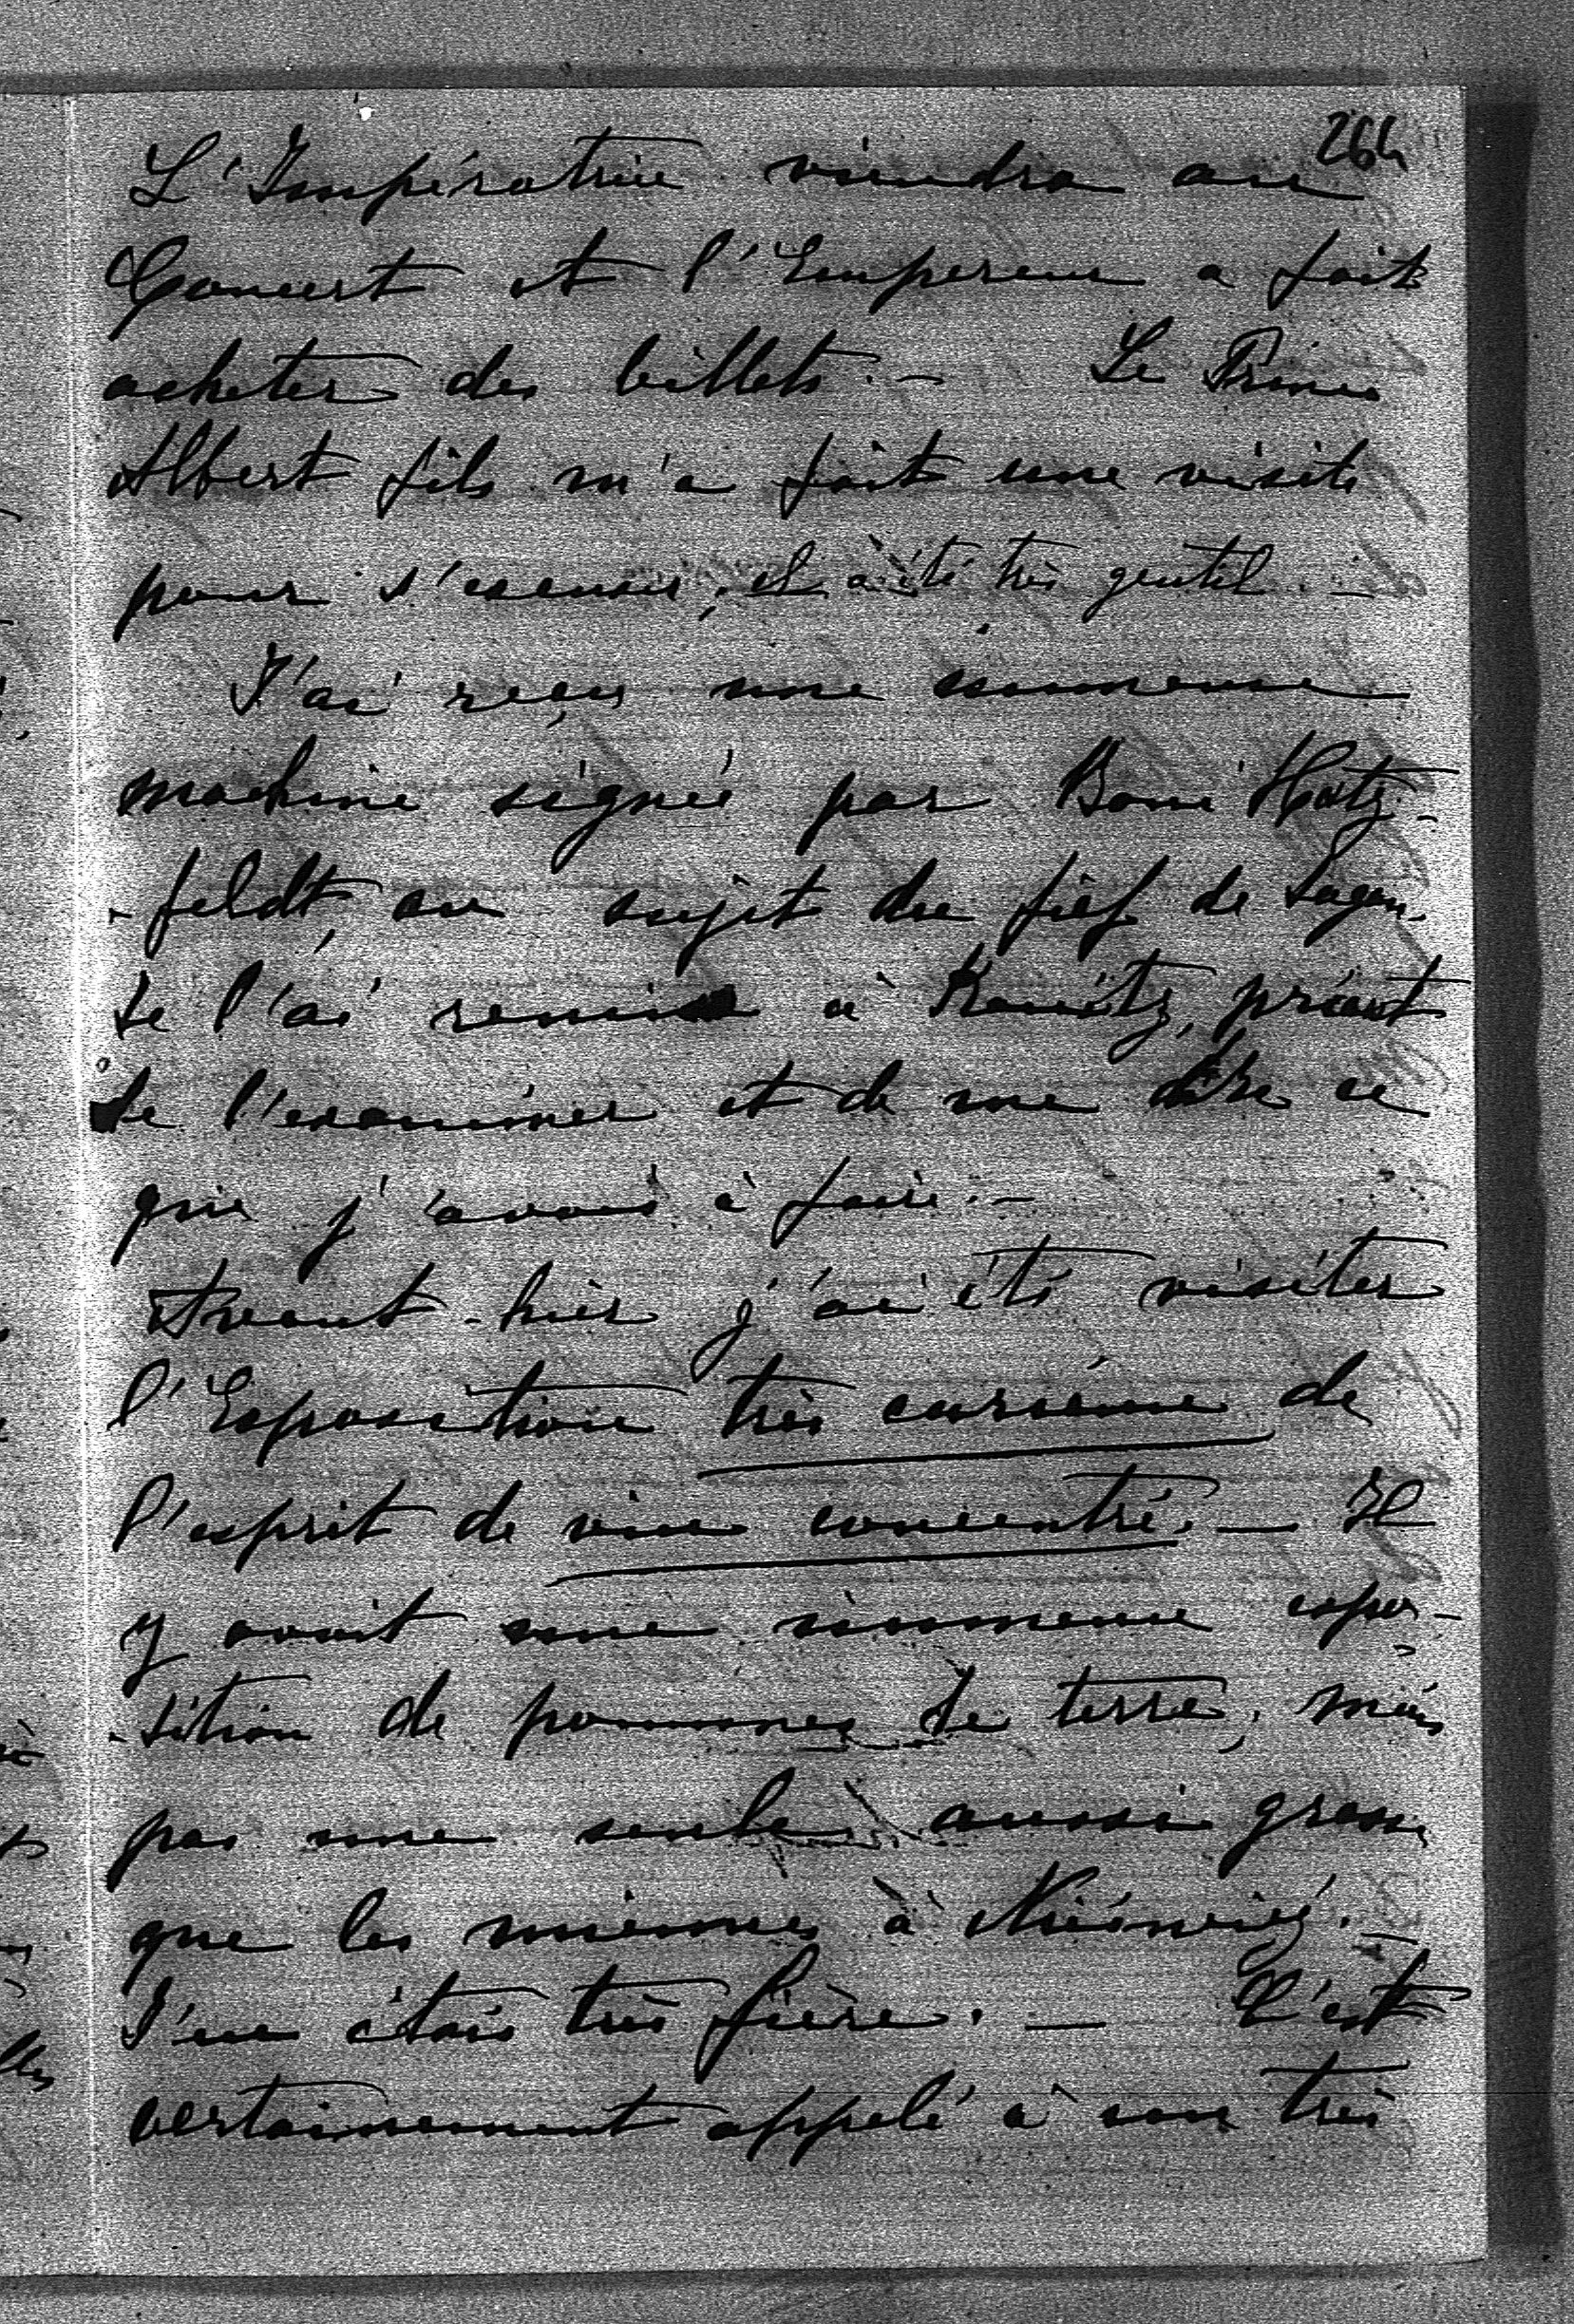 264
L'Impératrice viendra au
Concert et l'Empereur a fait
acheter des billets. – Le Prince
Albert fils m'a fait une visite
pour s'excuser, il a été très gentil. –
J'ai reçu une immense
machine signée par Boni Hatz-
-feldt, au sujet du fief de Sagan.
Je l'ai remise à, priant
de l'examiner et de me dire ce
que j'avais à faire. –
Avant-hier j'ai été visiter
l'Exposition très curieuse de
l'esprit de vin concentré. — Il
y avait une immense expo-
-sition de pommes de terre, mais
pas une seule aussi grosse
que les miennes à
J'en étais très fière. — C'est
certainement appelé à un très